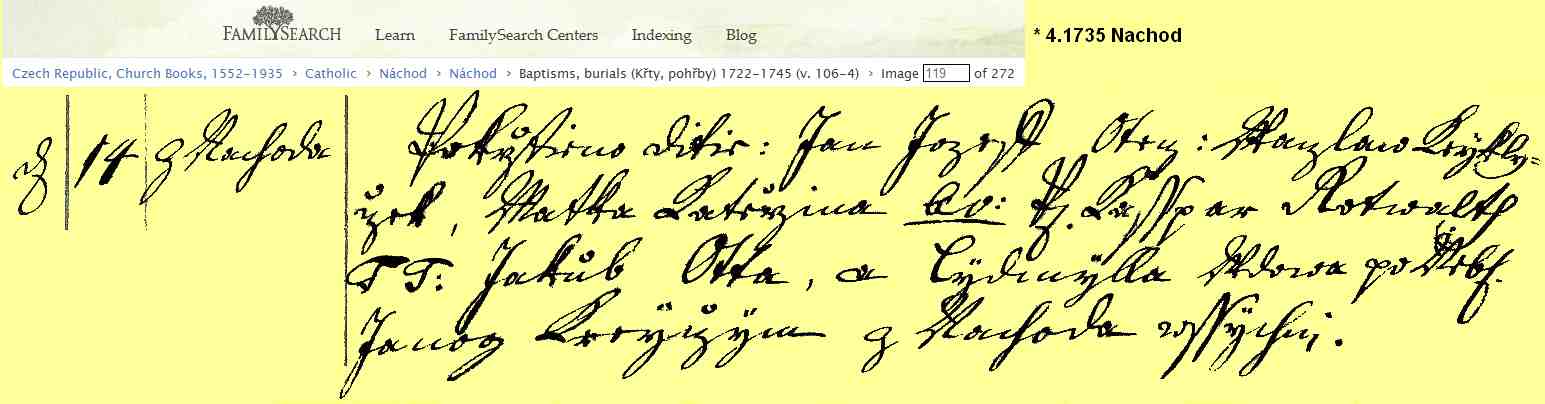 FAMILYSEARCH Learn FamilySearch Centers Indexing Blog
* 4.1735 Nachod
Czech Republic, Church Books, 1552-1935 › Catholic › Náchod › Náchod › Baptisms, burials (Křty, pohřby) 1722-1745 (v. 106-4) › Image 119 of 272
14 z Nachoda Pokrztieno ditie: Jan Jozeff Otecz: Waczlaw
Matka Katerzina Kasspar Rotwalth
TT: Jakub Otta, a Lydmylla Wdowa po Neb.
Janog z Nachoda wssychni.